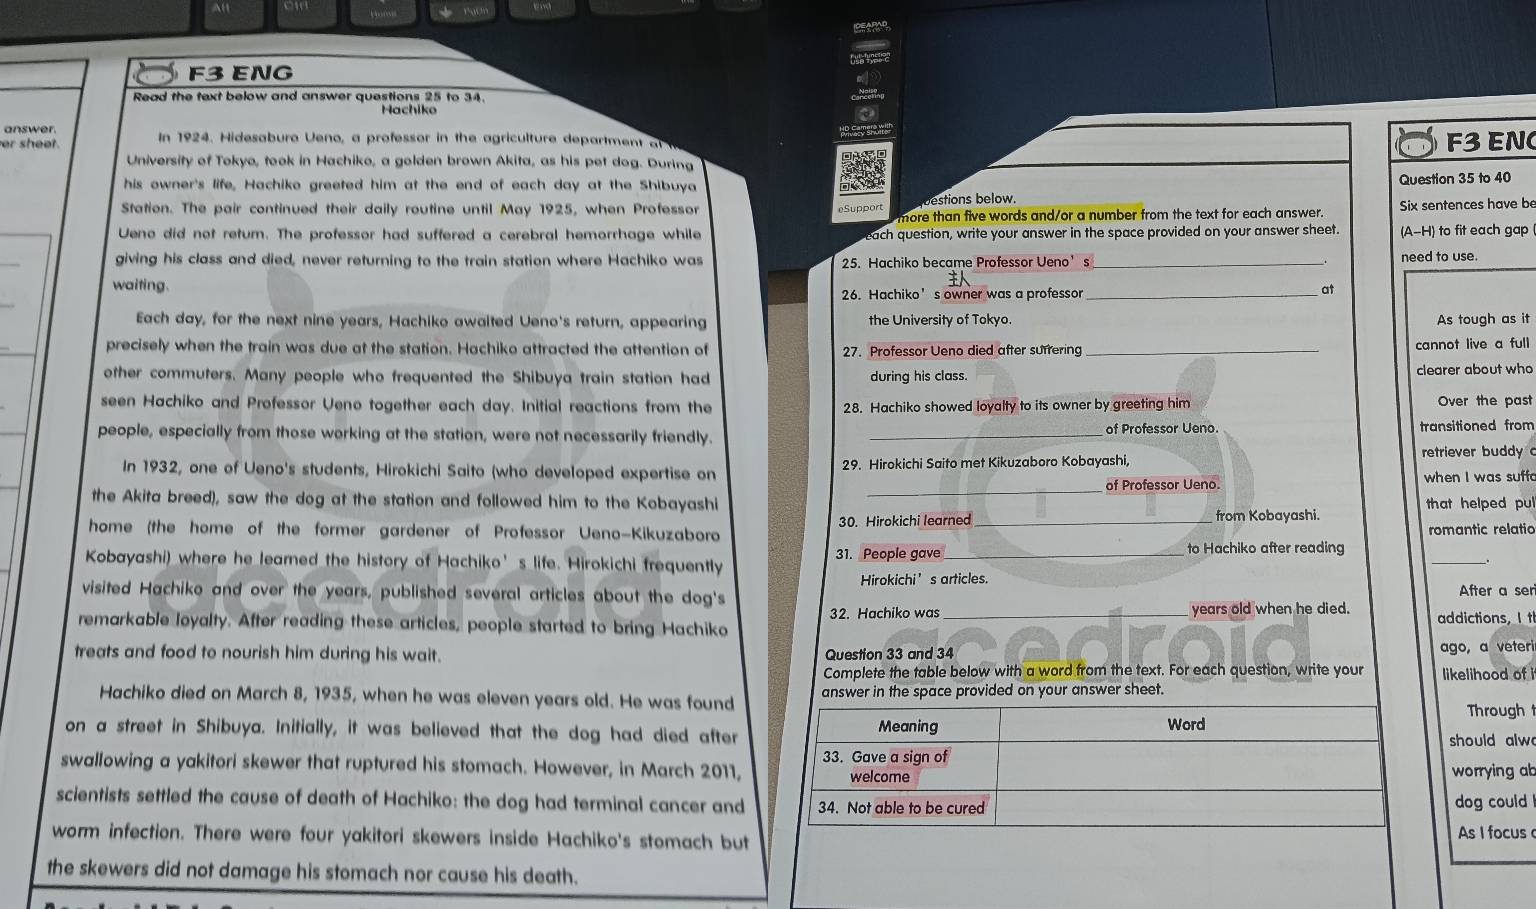 Alt Ctrl Home PgDn End
IDEAPAD
Full-function
USB Type-C
Noise
Canceling
HD Camera with
Privacy Shutter
eSupport
F3 ENG
Read the text below and answer questions 25 to 34.
Hachiko
answer.
er sheet.
In 1924, Hidesaburo Ueno, a professor in the agriculture department at
University of Tokyo, took in Hachiko, a golden brown Akita, as his pet dog. During
his owner's life, Hachiko greeted him at the end of each day at the Shibuya
Station. The pair continued their daily routine until May 1925, when Professor
Ueno did not return. The professor had suffered a cerebral hemorrhage while
giving his class and died, never returning to the train station where Hachiko was
waiting.
Each day, for the next nine years, Hachiko awaited Ueno's return, appearing
precisely when the train was due at the station. Hachiko attracted the attention of
other commuters. Many people who frequented the Shibuya train station had
seen Hachiko and Professor Ueno together each day. Initial reactions from the
people, especially from those working at the station, were not necessarily friendly.
In 1932, one of Ueno's students, Hirokichi Saito (who developed expertise on
the Akita breed), saw the dog at the station and followed him to the Kobayashi
home (the home of the former gardener of Professor Ueno-Kikuzaboro
Kobayashi) where he learned the history of Hachiko's life. Hirokichi frequently
visited Hachiko and over the years, published several articles about the dog's
remarkable loyalty. After reading these articles, people started to bring Hachiko
treats and food to nourish him during his wait.
Hachiko died on March 8, 1935, when he was eleven years old. He was found
on a street in Shibuya. Initially, it was believed that the dog had died after
swallowing a yakitori skewer that ruptured his stomach. However, in March 2011,
scientists settled the cause of death of Hachiko: the dog had terminal cancer and
worm infection. There were four yakitori skewers inside Hachiko's stomach but
the skewers did not damage his stomach nor cause his death.
acedroid
uestions below.
more than five words and/or a number from the text for each answer.
each question, write your answer in the space provided on your answer sheet.
25. Hachiko became Professor Ueno's ______.
主人
26. Hachiko's owner was a professor ______ at
the University of Tokyo.
27. Professor Ueno died after suffering ______
during his class.
28. Hachiko showed loyalty to its owner by greeting him
______ of Professor Ueno.
29. Hirokichi Saito met Kikuzaboro Kobayashi,
______ of Professor Ueno.
30. Hirokichi learned ______ from Kobayashi.
31. People gave ______ to Hachiko after reading
Hirokichi's articles.
32. Hachiko was ______ years old when he died.
acedroid
Question 33 and 34
Complete the table below with a word from the text. For each question, write your
answer in the space provided on your answer sheet.
Meaning Word
33. Gave a sign of
welcome
34. Not able to be cured
F3 ENG
Question 35 to 40
Six sentences have be
(A-H) to fit each gap (
need to use.
As tough as it
cannot live a full
clearer about who
Over the past
transitioned from
retriever buddy
when I was suffe
that helped pul
romantic relatio
______.
After a seri
addictions, I th
ago, a veteri
likelihood of i
Through t
should alwa
worrying ab
dog could
As I focus